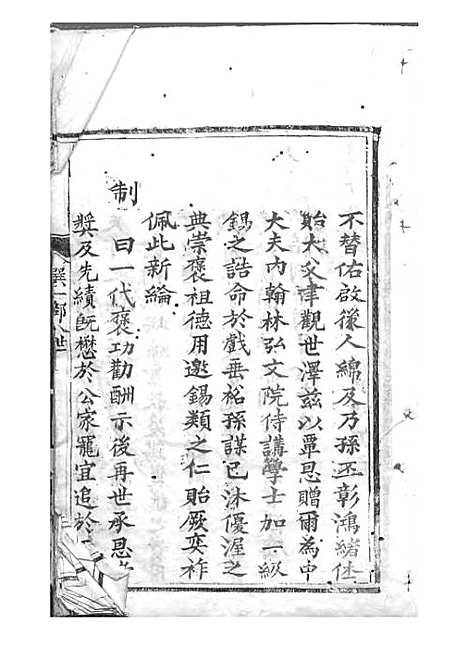 不替佑啟後人綿及乃孫丕彰鴻緒仕
貽大父聿觀世澤茲以覃恩贈爾為中
大夫內翰林弘文院侍講學士加一級
錫之誥命於戲垂裕孫謀已沐優渥之
典崇褒祖德用邀錫類之仁貽厥奕祚
佩此新綸
制
曰一代褒功勸酬示後再世承恩
獎及先績既懋於公家寵宜追於